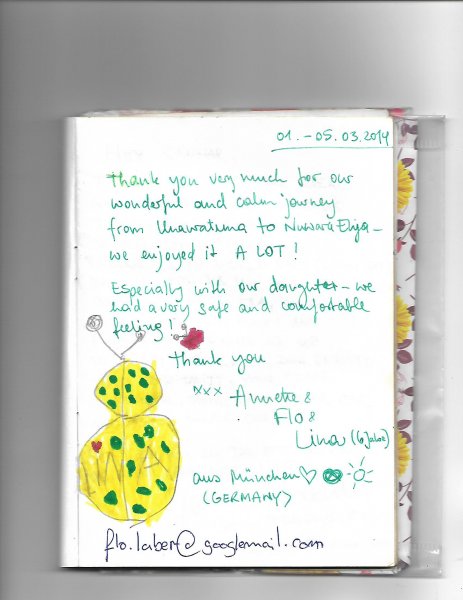 01. – 05.03.2014
Thank you very much for our
wonderful and calm journey
from Unawatuna to Nuwara Eliya –
we enjoyed it A LOT!
Especially with our daughter – we
had a very safe and comfortable
feeling!
Thank you
xxx Annette &
Flo &
Lina (6 Jahre)
aus München
(GERMANY)
flo.laber@googlemail.com